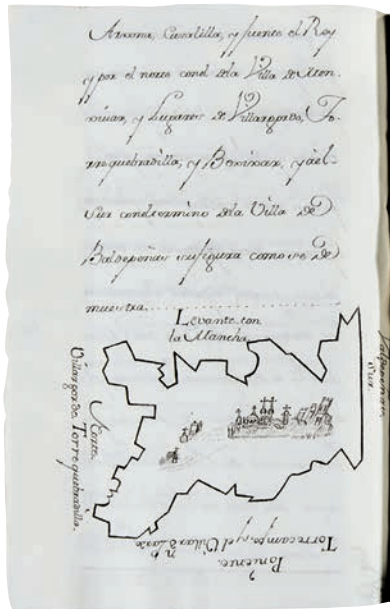 Arxona, Cazalilla, y fuente el Rey
y por el norte con el de la Villa de Men-
xivar, y Lugares de Villargordo, To-
rrequebradilla, y Bexixar, y a el
Sur con el termino de la Villa de
Baldepeñas su figura como se de
muestra
Levante con
la Mancha
Sur
Valdepeñas
Norte
Villargordo Torrequebradilla
Poniente
Torrecampo, y el Villar